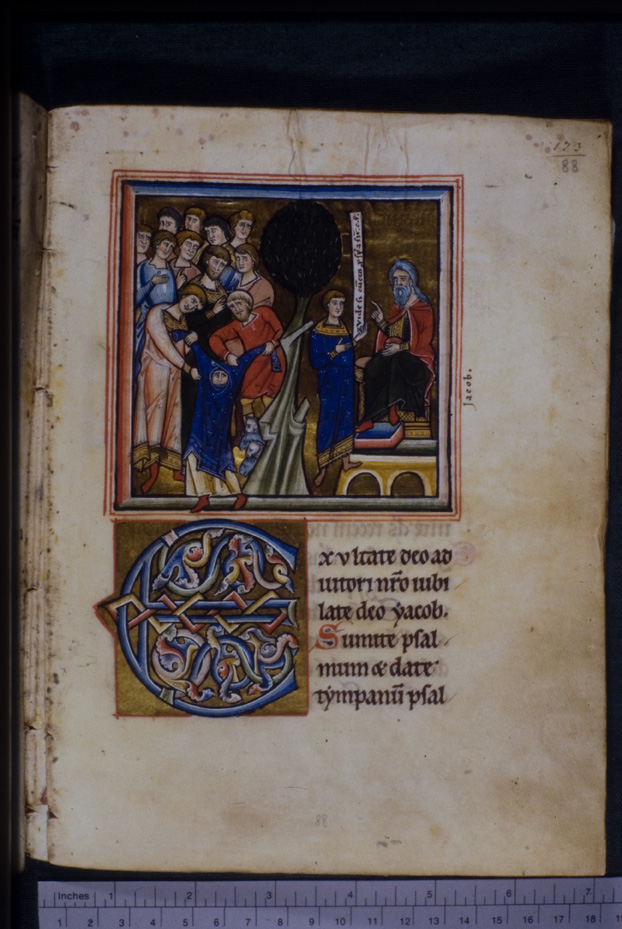 173
88
Jacob.
Exultate deo ad
iutori nr̄o iubi
late deo yacob.
Sumite psal
mum & date
tympanū psal
88
Inches 1 2 3 4 5 6 7
1 2 3 4 5 6 7 8 9 10 11 12 13 14 15 16 17 18